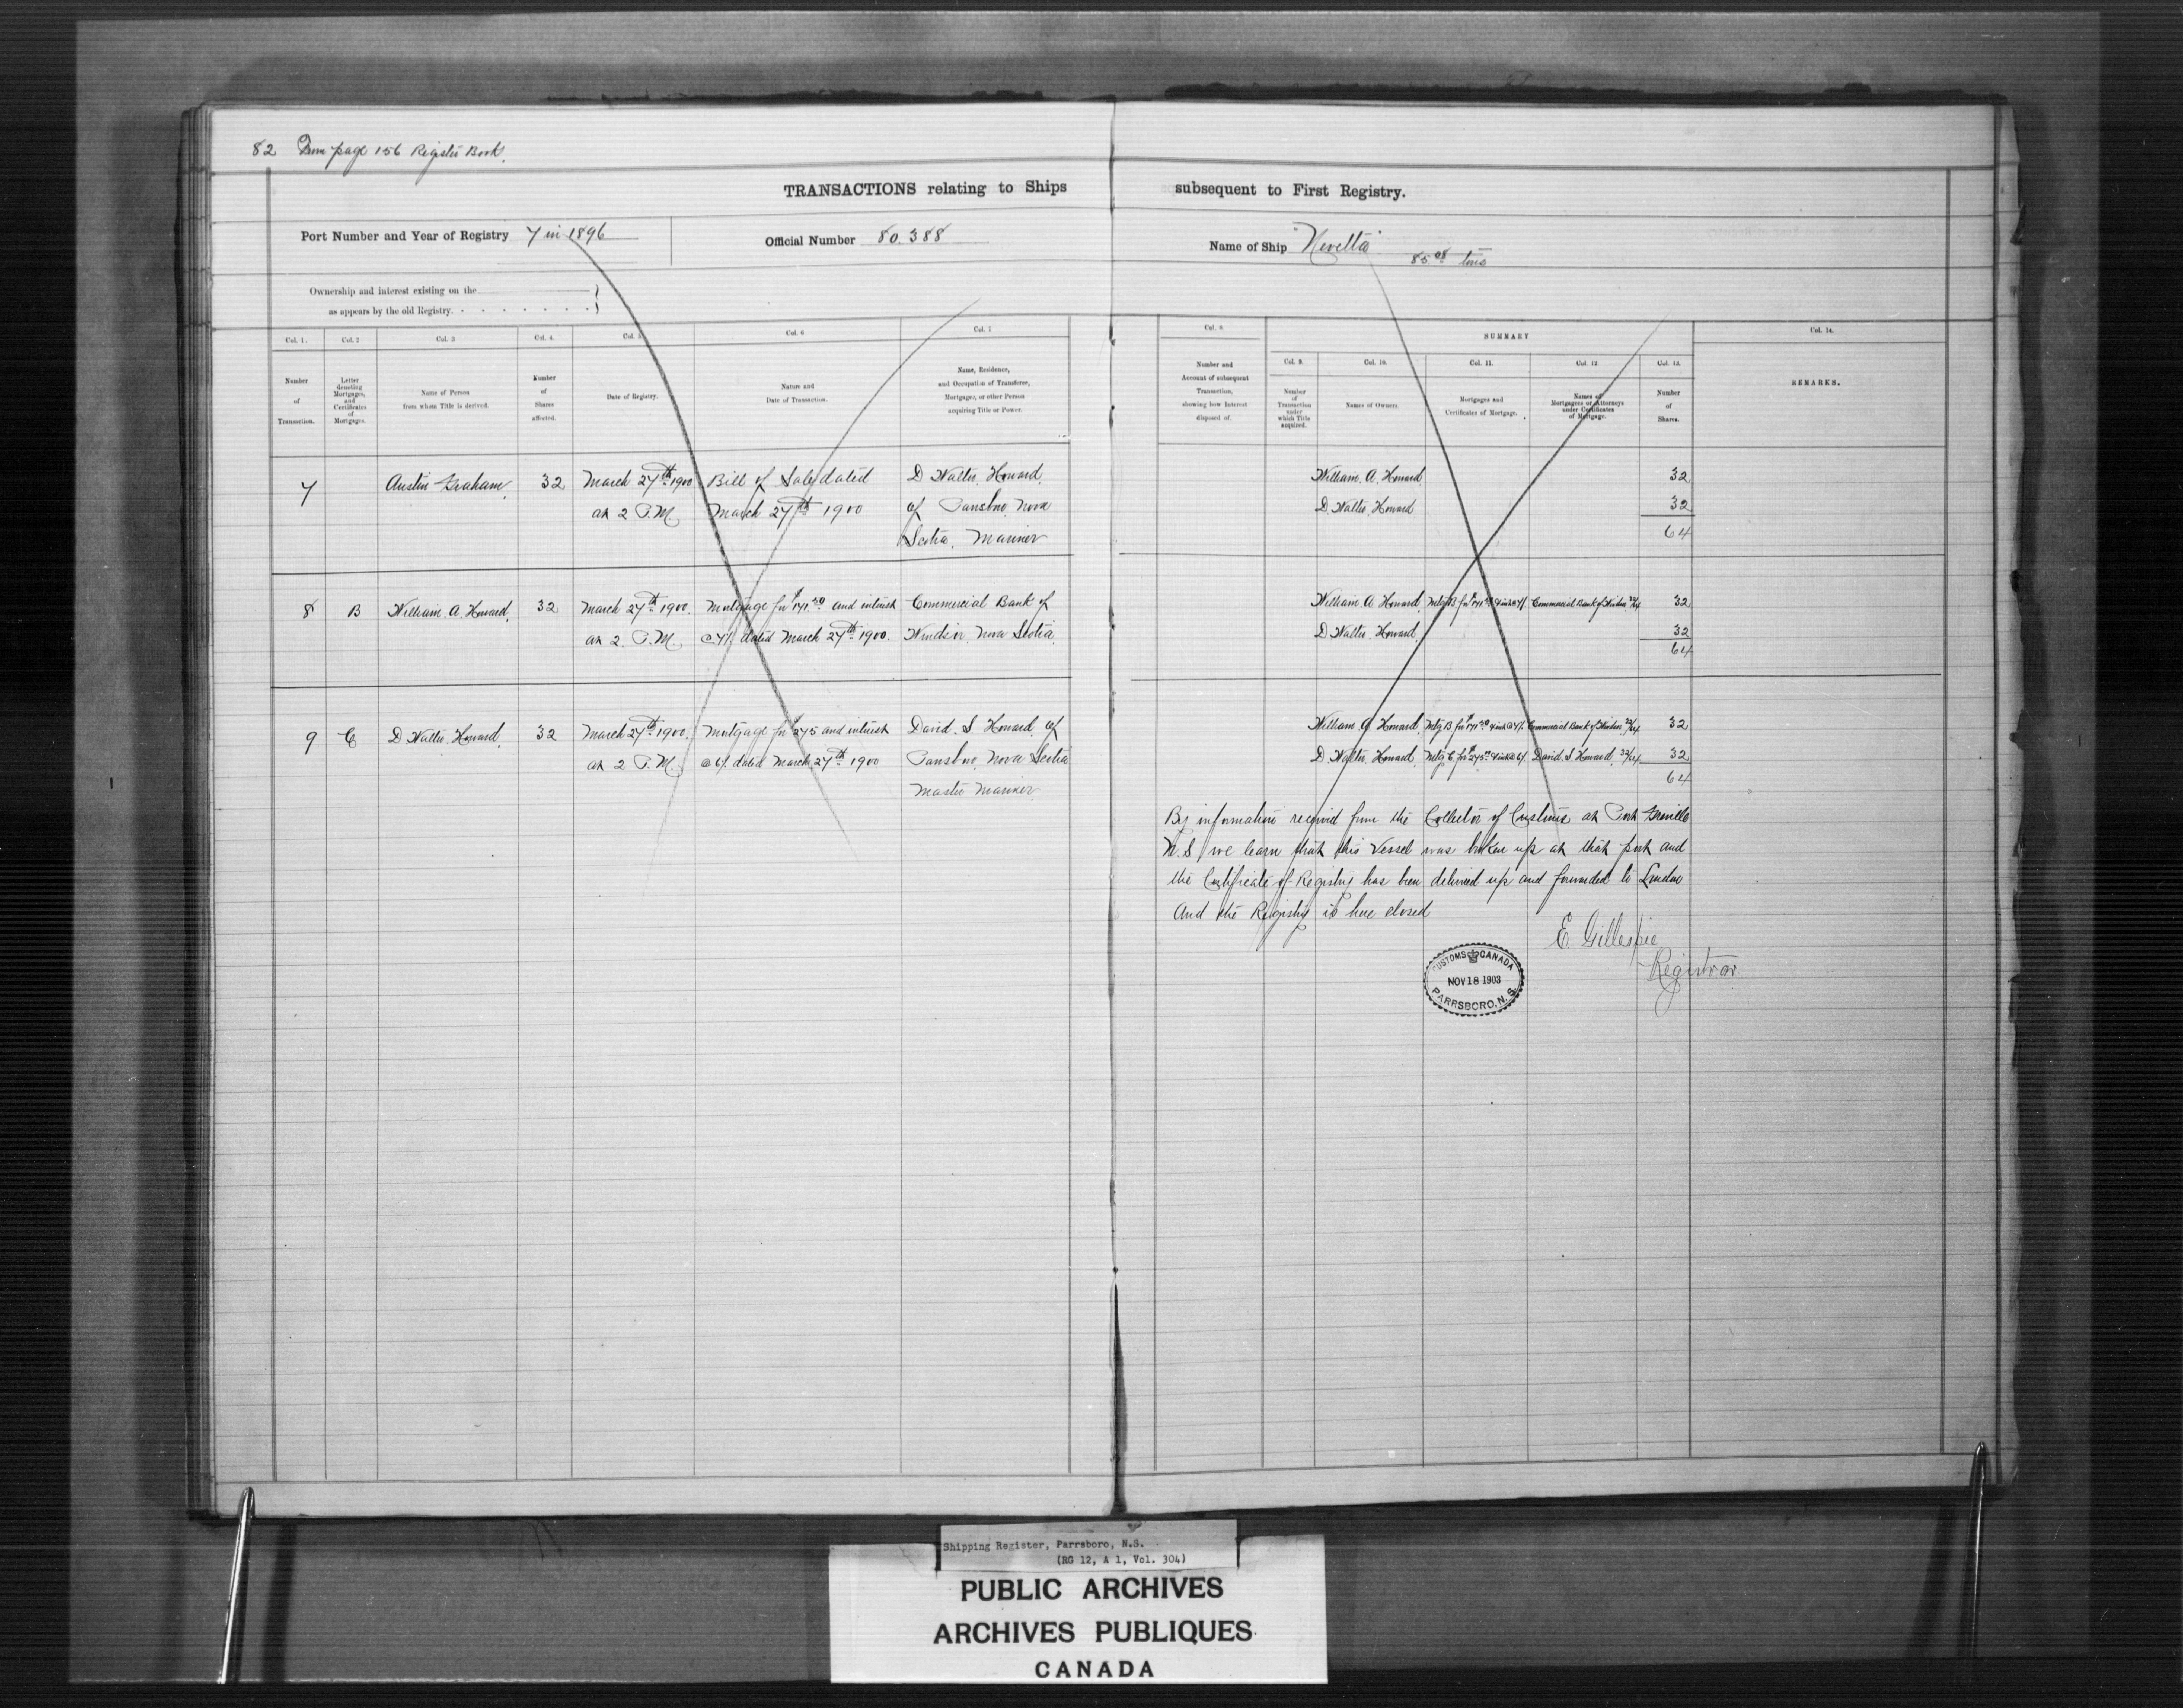 82 From page 156 Register Book.
TRANSACTIONS relating to Ships subsequent to First Registry.
Port Number and Year of Registry 7 in 1896
Official Number 80.388
Name of Ship "Nevetta" 85.08 tons
Ownership and interest existing on the
as appears by the old Registry.
Col. 1. Col. 2 Col. 3 Col. 4. Col. 5 Col. 6 Col. 7
Number of Transaction.
Letter denoting Mortgages, and Certificates of Mortgages.
Name of Person from whom Title is derived.
Number of Shares affected.
Date of Registry.
Nature and Date of Transaction.
Name, Residence, and Occupation of Transferee, Mortgagee, or other Person acquiring Title or Power.
Col. 8. SUMMARY Col. 14.
Col. 9. Col. 10. Col. 11. Col. 12 Col. 13.
Number and Account of subsequent Transaction, showing how Interest disposed of.
Number of Transaction under which Title acquired.
Names of Owners.
Mortgages and Certificates of Mortgage.
Names of Mortgagees or Attorneys under Certificates of Mortgage.
Number of Shares.
REMARKS.
7 Austin Graham. 32 March 27th 1900 Bill of Sale dated D Walter Howard.
at 2 P.M. March 27th 1900 of Parrsboro Nova
Scotia. Mariner
William. A. Howard 32
D. Walter. Howard 32
64
8 B William. A. Howard. 32 March 27th 1900. Mortgage for $ and interest Commercial Bank of
at 2. P.M. @ 7% dated March 27th 1900. Windsor, Nova Scotia.
William A Howard. Mtg B for Commercial Bank of Windsor 32/64 32
D Walter. Howard. 32
64
9 C D Walter Howard. 32 March 27th 1900. Mortgage for $275 and interest David. S. Howard. of
at 2 P.M. @ 6% dated March 27th 1900 Parrsboro, Nova Scotia
Master Mariner
William A Howard. Mtg B for Commercial Bank of Windsor 32/64 32
D Walter Howard. Mtg C for $275 David. S. Howard. 32/64 32
64
By information received from the Collector of Customs at Port Greville
N.S we learn that this Vessel was broken up at that port and
the Certificate of Registry has been delivered up and forwarded to London
And the Registry is here closed
E Gillespie
Registrar.
CUSTOMS CANADA
NOV 18 1903
PARRSBORO, N.S.
Shipping Register, Parrsboro, N.S.
(RG 12, A 1, Vol. 304)
PUBLIC ARCHIVES
ARCHIVES PUBLIQUES
CANADA